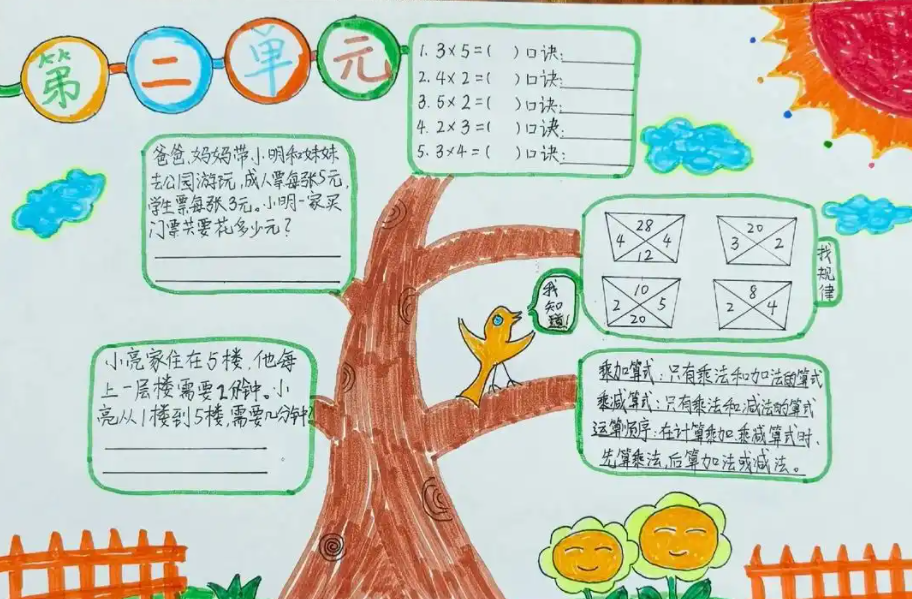 第二单元
1. 3×5=( )口诀:
2. 4×2=( )口诀:
3. 5×2=( )口诀:
4. 2×3=( )口诀:
5. 3×4=( )口诀:
爸爸、妈妈带小明和妹妹
去公园游玩,成人票每张5元,
学生票每张3元。小明一家买
门票共要花多少元?
28
4 4
12
20
3 2
10
2 5
20
8
2 4
找规律
我知道!
小亮家住在5楼,他每
上一层楼需要2分钟。小
亮从1楼到5楼,需要几分钟?
乘加算式:只有乘法和加法的算式
乘减算式:只有乘法和减法的算式
运算顺序:在计算乘加、乘减算式时、
先算乘法,后算加法或减法。